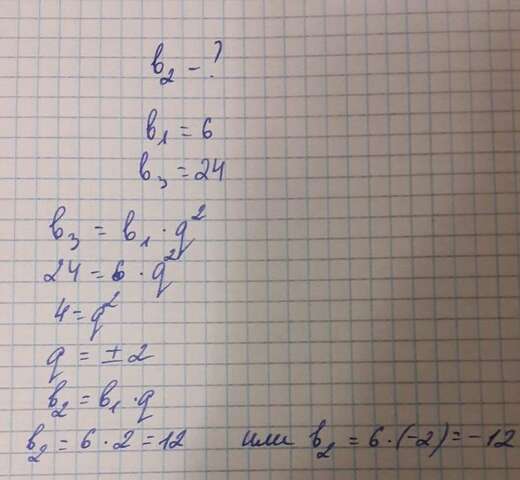 b₂ - ?
b₁ = 6
b₃ = 24
b₃ = b₁ · q²
24 = 6 · q²
4 = q²
q = ± 2
b₂ = b₁ · q
b₂ = 6 · 2 = 12 или b₂ = 6 · (-2) = -12